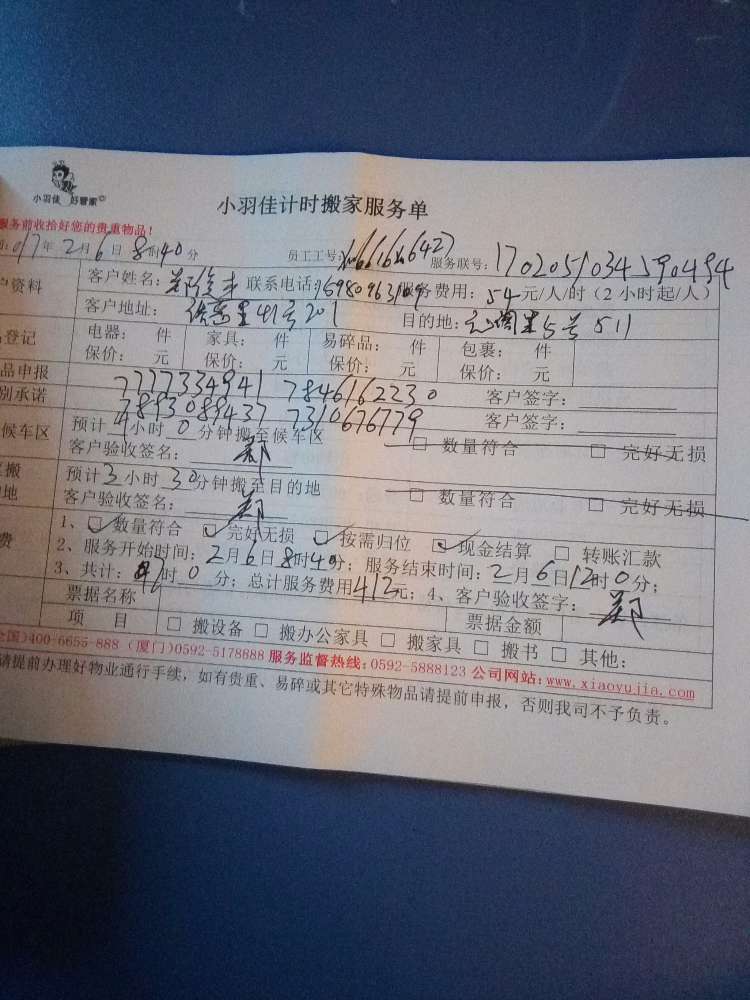 小羽佳 好管家
小羽佳计时搬家服务单
服务前收拾好您的贵重物品!
017年2月6日8时40分 员工工号: 服务联号:1702051034590494
资料 客户姓名: 联系电话: 服务费用:54元/人/时(2小时起/人)
客户地址: 号201 目的地: 5号511
登记 电器: 件 家具: 件 易碎品: 件 包裹: 件
保价: 元 保价: 元 保价: 元 保价: 元
品申报 7777334941 7846162230 客户签字:
别承诺 7893089437 7310676779 客户签字:
候车区 预计 小时0分钟搬至候车区 □ 数量符合 □ 完好无损
客户验收签名:郑
搬 预计3小时30分钟搬至目的地 □ 数量符合 □ 完好无损
地 客户验收签名:郑
1、☑数量符合 ☑完好无损 ☑按需归位 ☑现金结算 □ 转账汇款
费 2、服务开始时间:2月6日8时40分;服务结束时间:2月6日12时0分;
3、共计: 时0分;总计服务费用412元;4、客户验收签字:郑
票据名称 票据金额
项 目 □ 搬设备 □ 搬办公家具 □ 搬家具 □ 搬书 □ 其他:
全国)400-6655-888 (厦门)0592-5178688 服务监督热线:0592-5888123 公司网站:www.xiaoyujia.com
请提前办理好物业通行手续,如有贵重、易碎或其它特殊物品请提前申报,否则我司不予负责。